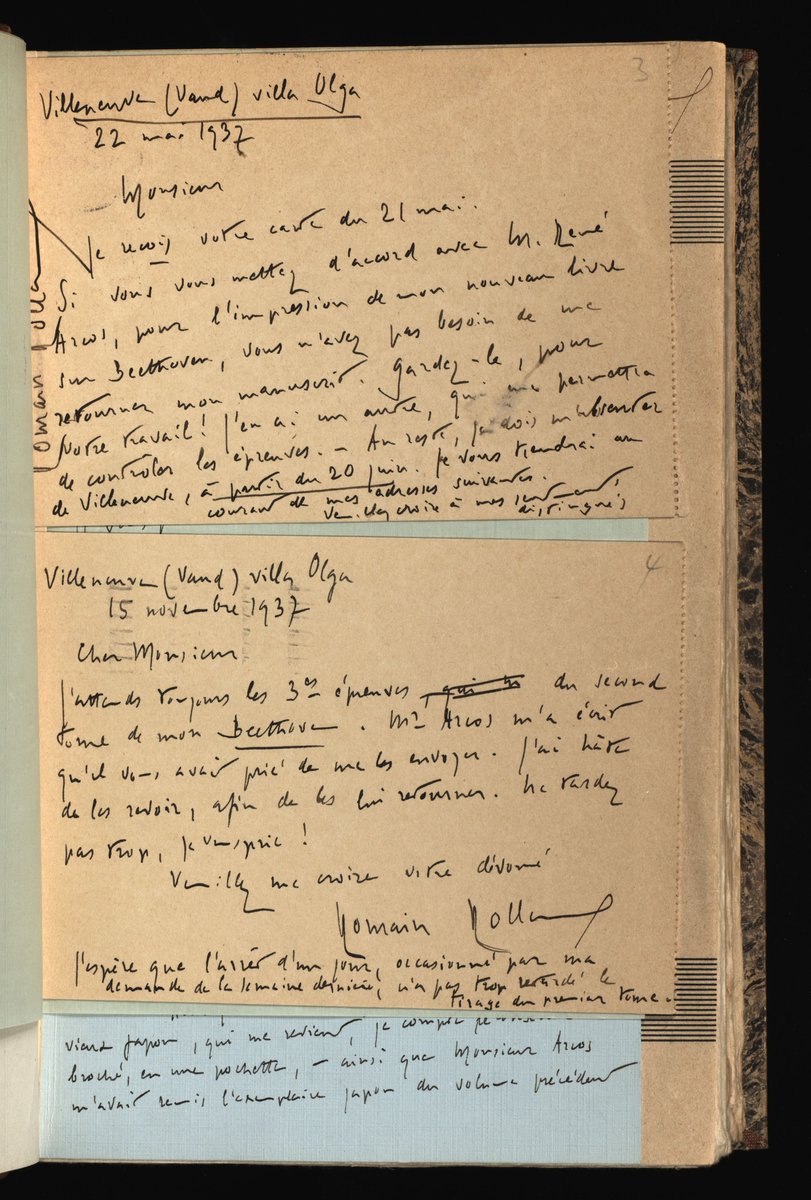 3
Villeneuve (Vaud) villa Olga
22 mai 1937
Monsieur
Je reçois votre carte du 21 mai.
Si vous vous mettez d'accord avec M. René
Arcos, pour l'impression de mon nouveau livre
sur Beethoven, vous n'avez pas besoin de me
retourner mon manuscrit. Gardez-le, pour
votre travail! J'en ai un autre, qui me permettra
de contrôler les épreuves. – Au reste, je dois m'absenter
de Villeneuve, à partir du 20 juin. Je vous tiendrai au
courant de mes adresses suivantes.
Veuillez croire à mes sentiments
distingués
Romain Rolland
4
Villeneuve (Vaud) villa Olga
15 novembre 1937
Cher Monsieur
J'attends toujours les 3es épreuves, qui du second
tome de mon Beethoven. Mr Arcos m'a écrit
qu'il vous avait prié de me les envoyer. J'ai hâte
de les revoir, afin de les lui retourner. Ne tardez
pas trop, je vous prie!
Veuillez me croire votre dévoué
Romain Rolland
J'espère que l'arrêt d'un jour, occasionné par ma
demande de la semaine dernière, n'a pas trop retardé le
tirage du premier tome.
vieux Japon, qui me revient, je compte
broché, en une pochette, – ainsi que Monsieur Arcos
m'avait remis l'exemplaire japon du volume précédent